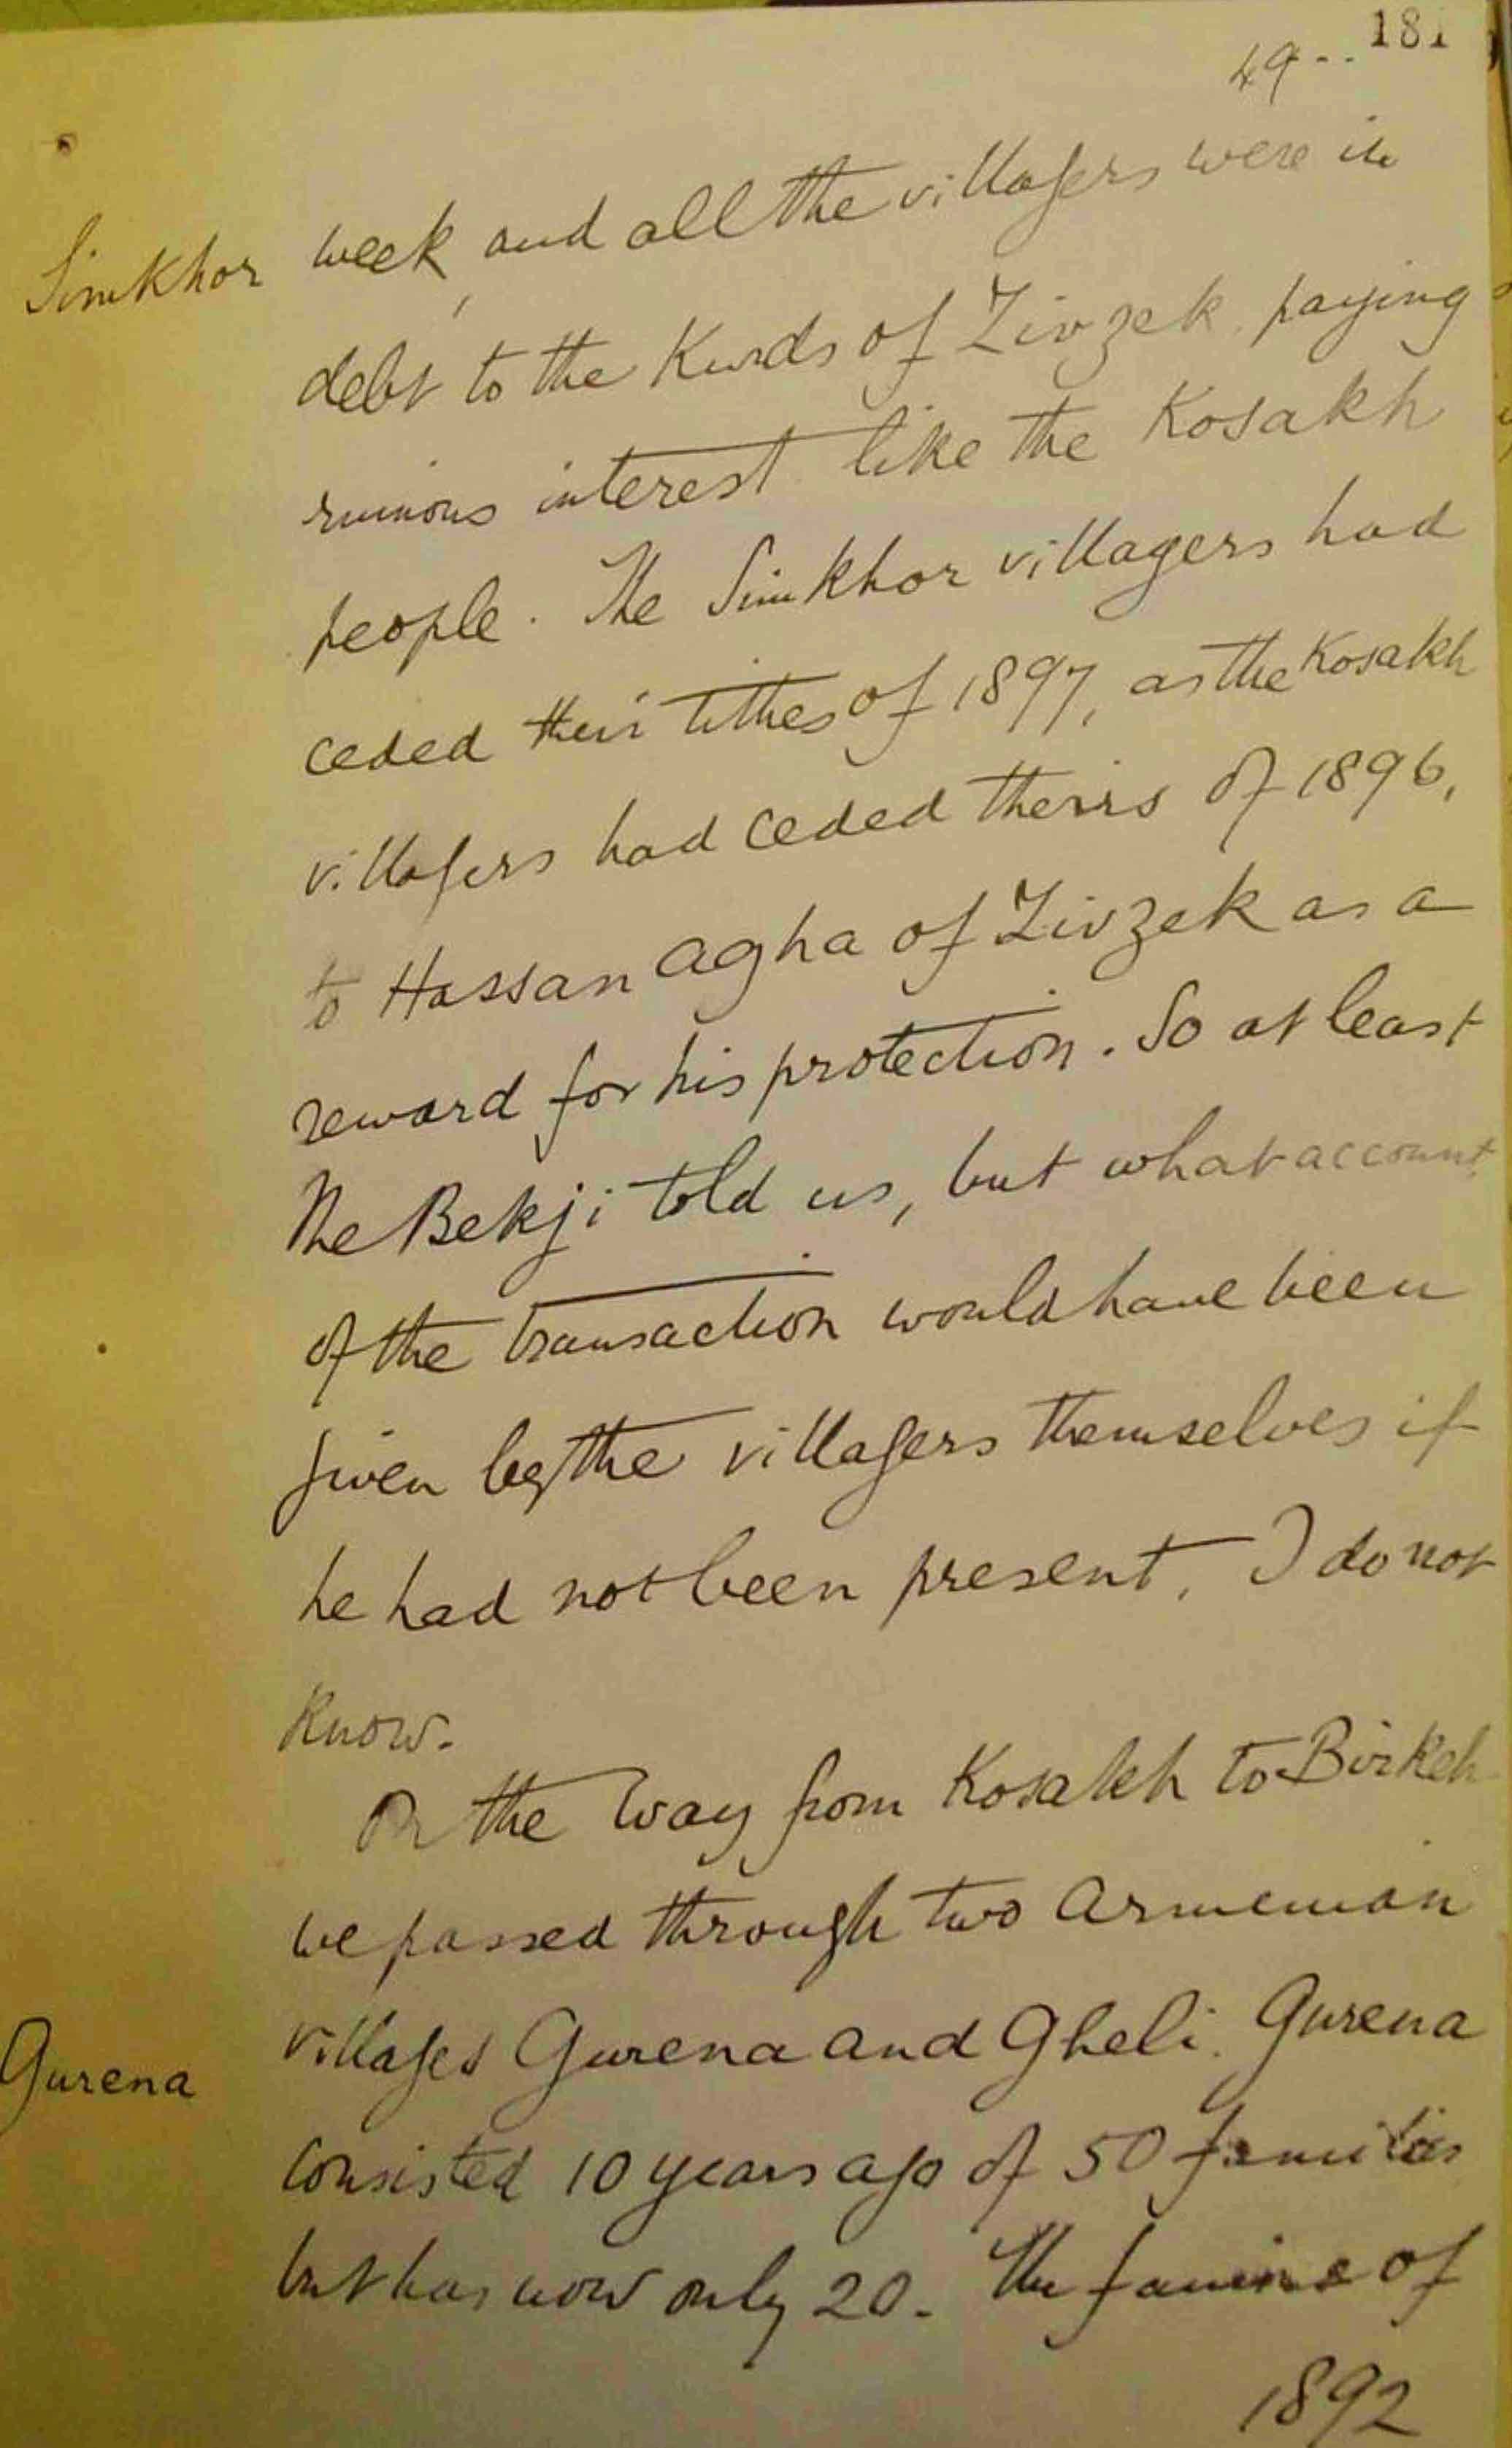 181
49--
Simkhor week, and all the villagers were in
debt to the Kurds of Zivzek, paying
ruinous interest like the Kosakh
people. The Simkhor villagers had
ceded their tithes of 1897, as the Kosakh
villagers had ceded theirs of 1896,
to Hassan Agha of Zivzek as a
reward for his protection. So at least
the Bekji told us, but what account
of the transaction would have been
given by the villagers themselves if
he had not been present, I do not
know.
On the way from Kosakh to Birkeh
we passed through two Armenian
Gurena villages Gurena and Gheli. Gurena
consisted 10 years ago of 50 families
but has now only 20. The famine of
1892